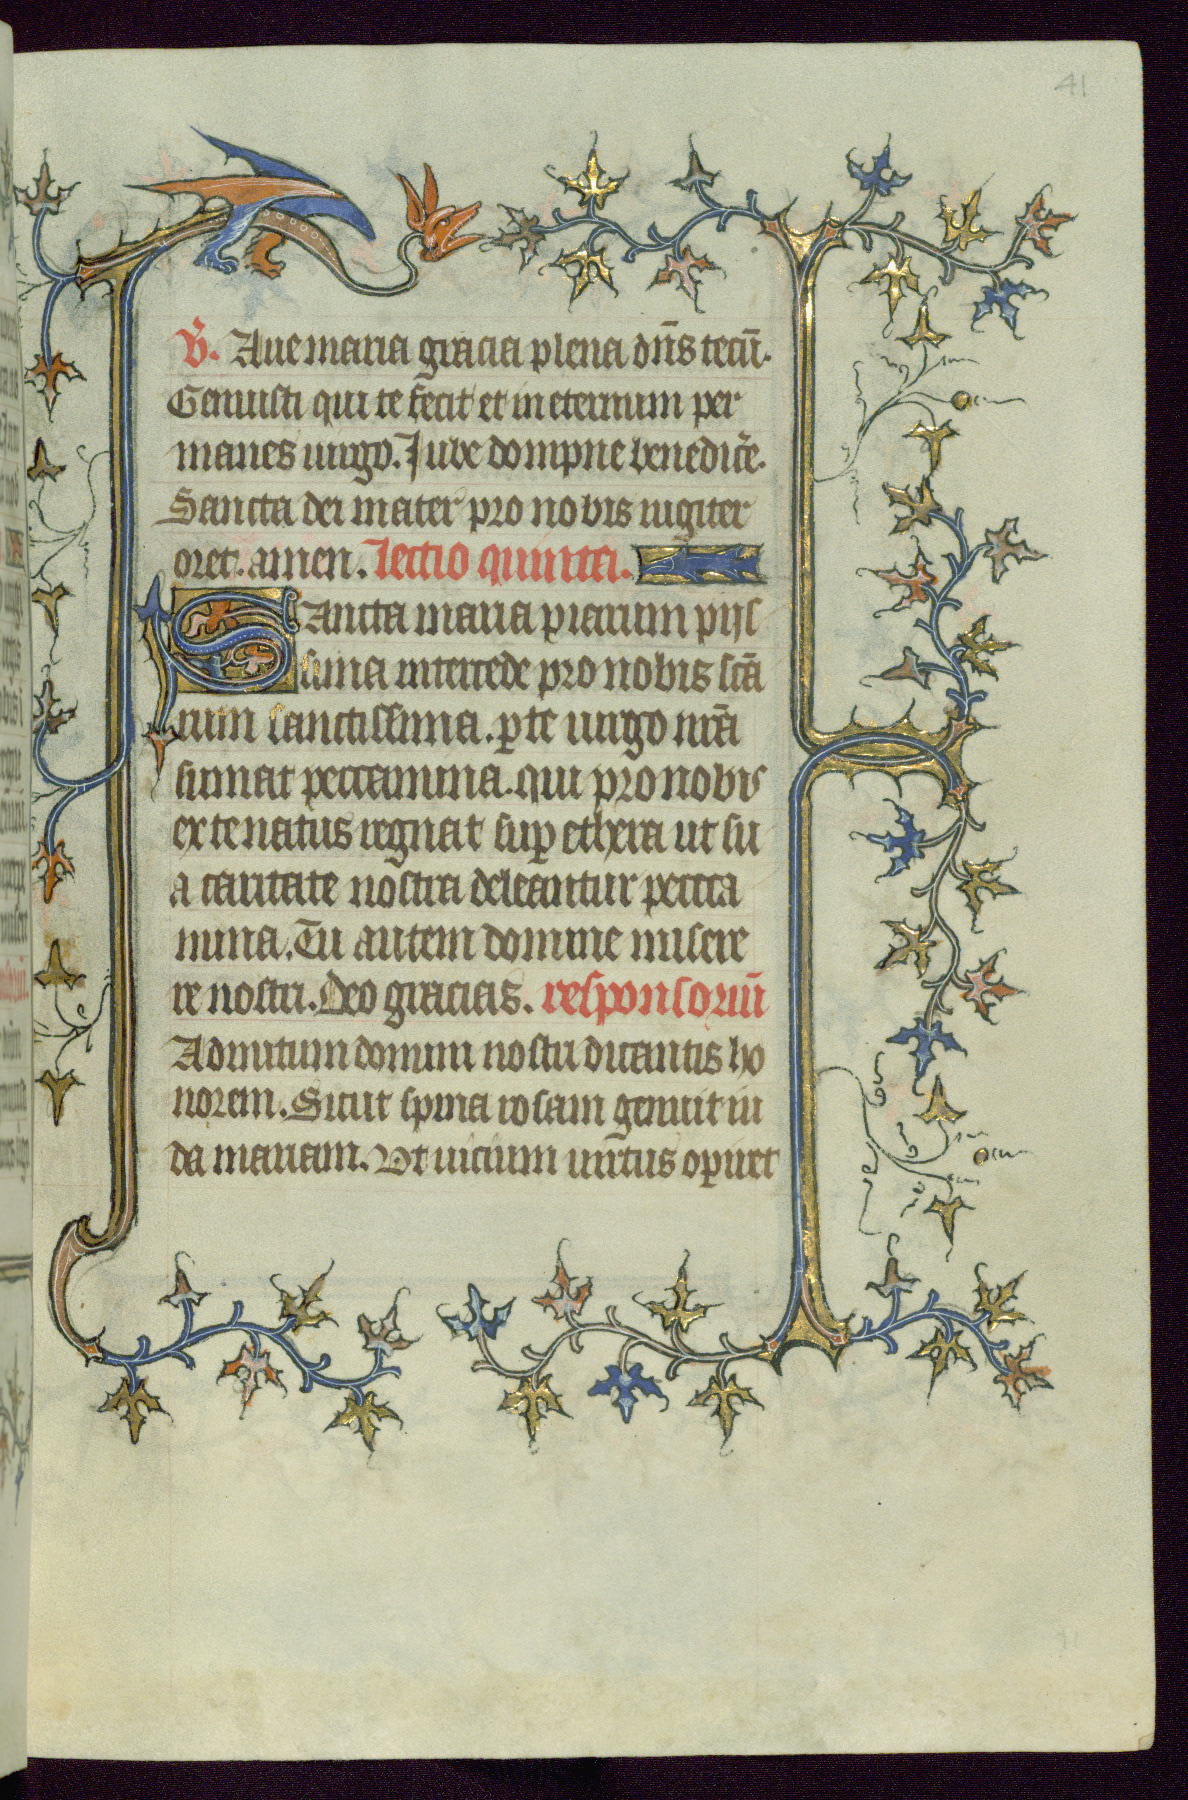 41
V̄. Aue maria gracia plena dn̄s tecū.
Genuisti qui te fecit et in eternum per
manes uirgo. Iube dompne benedic̄e.
Sancta dei mater pro nobis iugiter
oret. amen. lectio quinta.
Sancta maria piarum piis
sima intercede pro nobis sc̄a
rum sanctissima. ꝑ te uirgo nr̄a
sumat peccamina. qui pro nobis
ex te natus regnat suꝑ ethera ut su
a caritate nostra deleantur pecca
mina. Tu autem domine misere
re nostri. Deo gracias. responsoriū
Ad nutum domini nostri ditantis ho
norem. Sicut spina rosam genuit iu
da mariam. Ut uicium uirtus oꝑiret